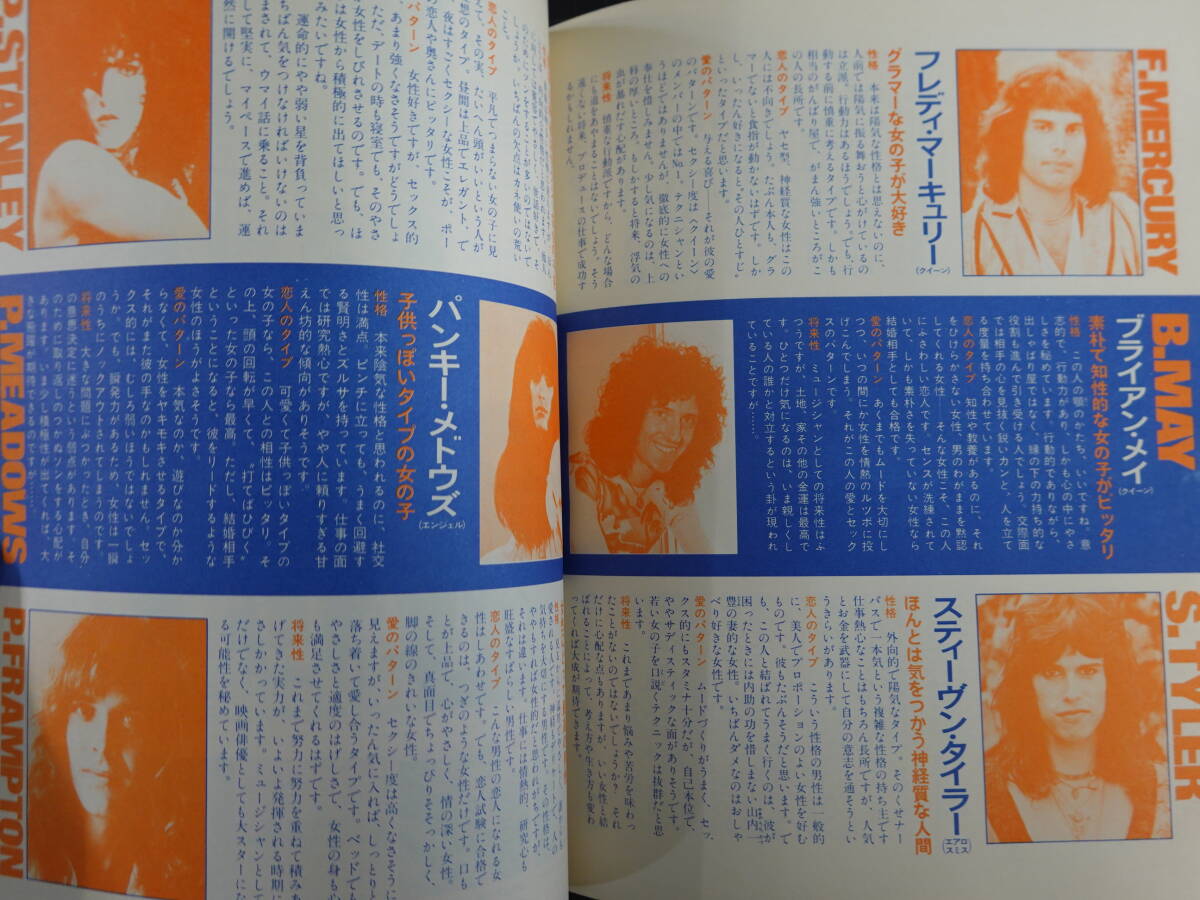 F.MERCURY
フレディ・マーキュリー
(クイーン)
グラマーな女の子が大好き
性格　本来は陽気な性格とは思えないのに、
人前では陽気に振る舞おうと心がけているの
は立派。行動力はあるほうでしょう。でも、行
動する前に慎重に考えるタイプです。しかも
相当のがんばり屋で、がまん強いところがこ
の人の長所です。
恋人のタイプ　ヤセ型、神経質な女性はこの
人には不向きでしょう。たぶん本人も、グラ
マーでないと食指が動かないはずです。しか
し、いったん好きになると、その人ひとすじ
といったタイプだと思います。
愛のパターン　与える喜び——それが彼の愛
のパターンです。セクシー度は〈クイーン〉
のメンバーの中ではNo.1。テクニシャンとい
うほどではありませんが、徹底的に女性への
奉仕を惜しみません。少し気になるのは、上
唇の厚いところ。もしかすると将来、浮気の
虫が暴れだす心配があります。
将来性　慎重な行動派ですから、どんな場合
にも道をあやまることはないでしょう。そう
遠くない将来、プロデュースの仕事で成功す
るかもしれません。
B.MAY
ブライアン・メイ
(クイーン)
素朴で知性的な女の子がピッタリ
性格　この人の顎のかたち、いいですね。意
志的で、行動力があり、しかも心の中にやさ
しさを秘めています。行動的でありながら、
出しゃばり屋ではなく、縁の下の力持ち的な
役割も進んで引き受ける人でしょう。交際面
では相手の心を見抜く鋭いカンと、人を立て
る度量を持ち合わせています。
恋人のタイプ　知性や教養があるのに、それ
をひけらかさない女性、男のわがままを黙認
してくれる女性——そんな女性こそ、この人
にふさわしい恋人です。センスが洗練されて
いて、しかも素朴さを失っていない女性なら
結婚相手としても合格です。
愛のパターン　あくまでもムードを大切にし
つつ、いつの間にか女性を情熱のルツボに投
げこんでしまう、それがこの人の愛とセック
スのパターンです。
将来性　ミュージシャンとしての将来性はふ
つうですが、土地、家その他の金運は最高で
す。ひとつだけ気になるのは、いま親しくし
ている人の誰かと対立するという卦が現われ
ていることですが……。
S.TYLER
スティーヴン・タイラー
(エアロスミス)
ほんとは気をつかう神経質な人間
性格　外向的で陽気なタイプ。そのくせナー
バスで一本気という複雑な性格の持ち主です
仕事熱心なことはもちろん長所ですが、人気
とお金を武器にして自分の意志を通そうとい
うきらいがあります。
恋人のタイプ　こういう性格の男性は一般的
に、美人でプロポーションのよい女性を好む
ものです。彼もたぶんそうだと思います。で
も、この人と結ばれてうまく行くのは、彼が
困ったときには内助の功を惜しまない山内一
豊の妻的な女性。いちばんダメなのはおしゃ
べり好きな女性です。
愛のパターン　ムードづくりがうまく、セッ
クス的にもスタミナ十分だが、自己本位で、
ややサディスティックな面がありそうです。
若い女の子を口説くテクニックは抜群だと思
います。
将来性　これまであまり悩みや苦労を味わっ
たことがないのではないでしょうか？　それ
だけに心配な点もありますが、いい女性と結
ばれることによって、考え方や生き方も変わ
ってくれば大成が期待できます。
P.STANLEY
恋人のタイプ　平凡でつまらない女の子に見
えて、その実、たいへん頭がいいという人が
理想のタイプ。昼間は上品でエレガント、で
も夜はすごくセクシーな女性こそが、ポー
ルの恋人や奥さんにピッタリです。
愛のパターン　女性好きですが、セックス的
には、あまり強くなさそうですがどうでしょ
う。ただ、デートの時も寝室でも、そのやさ
しさが女性をしびれさせるのです。でも、ほ
んとは女性から積極的に出てほしいと思っ
ているみたいですね。
運命的にやや弱い星を背負っていま
いちばん気をつけなければいけないのは
まされて、ウマイ話に乗ること。それ
して堅実に、マイペースで進めば、運
然に開けるでしょう。
P.MEADOWS
パンキー・メドウズ
(エンジェル)
子供っぽいタイプの女の子
性格　本来陰気な性格と思われるのに、社交
性は満点。ピンチに立っても、うまく回避す
る賢明さとズルサを持っています。仕事の面
では研究熱心ですが、やや人に頼りすぎる甘
えん坊的な傾向がありそうです。
恋人のタイプ　可愛くて子供っぽいタイプの
女の子なら、この人との相性はピッタリ。そ
の上、頭の回転が早くて、“打てばひびく”
といった女の子なら最高。ただし、結婚相手
ということになると、彼をリードするような
女性のほうがよさそうです。
愛のパターン　本気なのか、遊びなのか分か
らなくて、女性をヤキモキさせるタイプで、
それがまた彼の手なのかもしれません。セッ
クス的には、むしろ弱いほうではないでしょ
うか。でも、瞬発力があるため、女性は一瞬
のうちにノックアウトされてしまうのです。
将来性　大きな問題にぶつかったとき、自分
の意思決定に迷うという弱点があります。そ
のために取り返しのつかぬソンをする心配が
あります。いま少し積極性が出てくれば、大
きな飛躍が期待できるのですが……
P.FRAMPTON
恋人のタイプ　こんな男性の恋人になれる女
性はしあわせです。でも、恋人試験に合格で
きるのは、つぎのような女性だけです。口も
とが上品で、心がやさしく、情の深い女性。
そして、真面目でちょっぴりそそっかしく、
脚の線のきれいな女性。
愛のパターン　セクシー度は高くなさそうに
見えますが、いったん気に入れば、しっとりと
落ち着いて愛し合うタイプです。ベッドでも
やさしさと適度のはげしさで、女性の身も心
も満足させてくれるはずです。
将来性　これまで努力に努力を重ねて積みあ
げてきた実力が、いよいよ発揮される時期に
さしかかっています。ミュージシャンとして
だけでなく、映画俳優としても大スターにな
る可能性を秘めています。